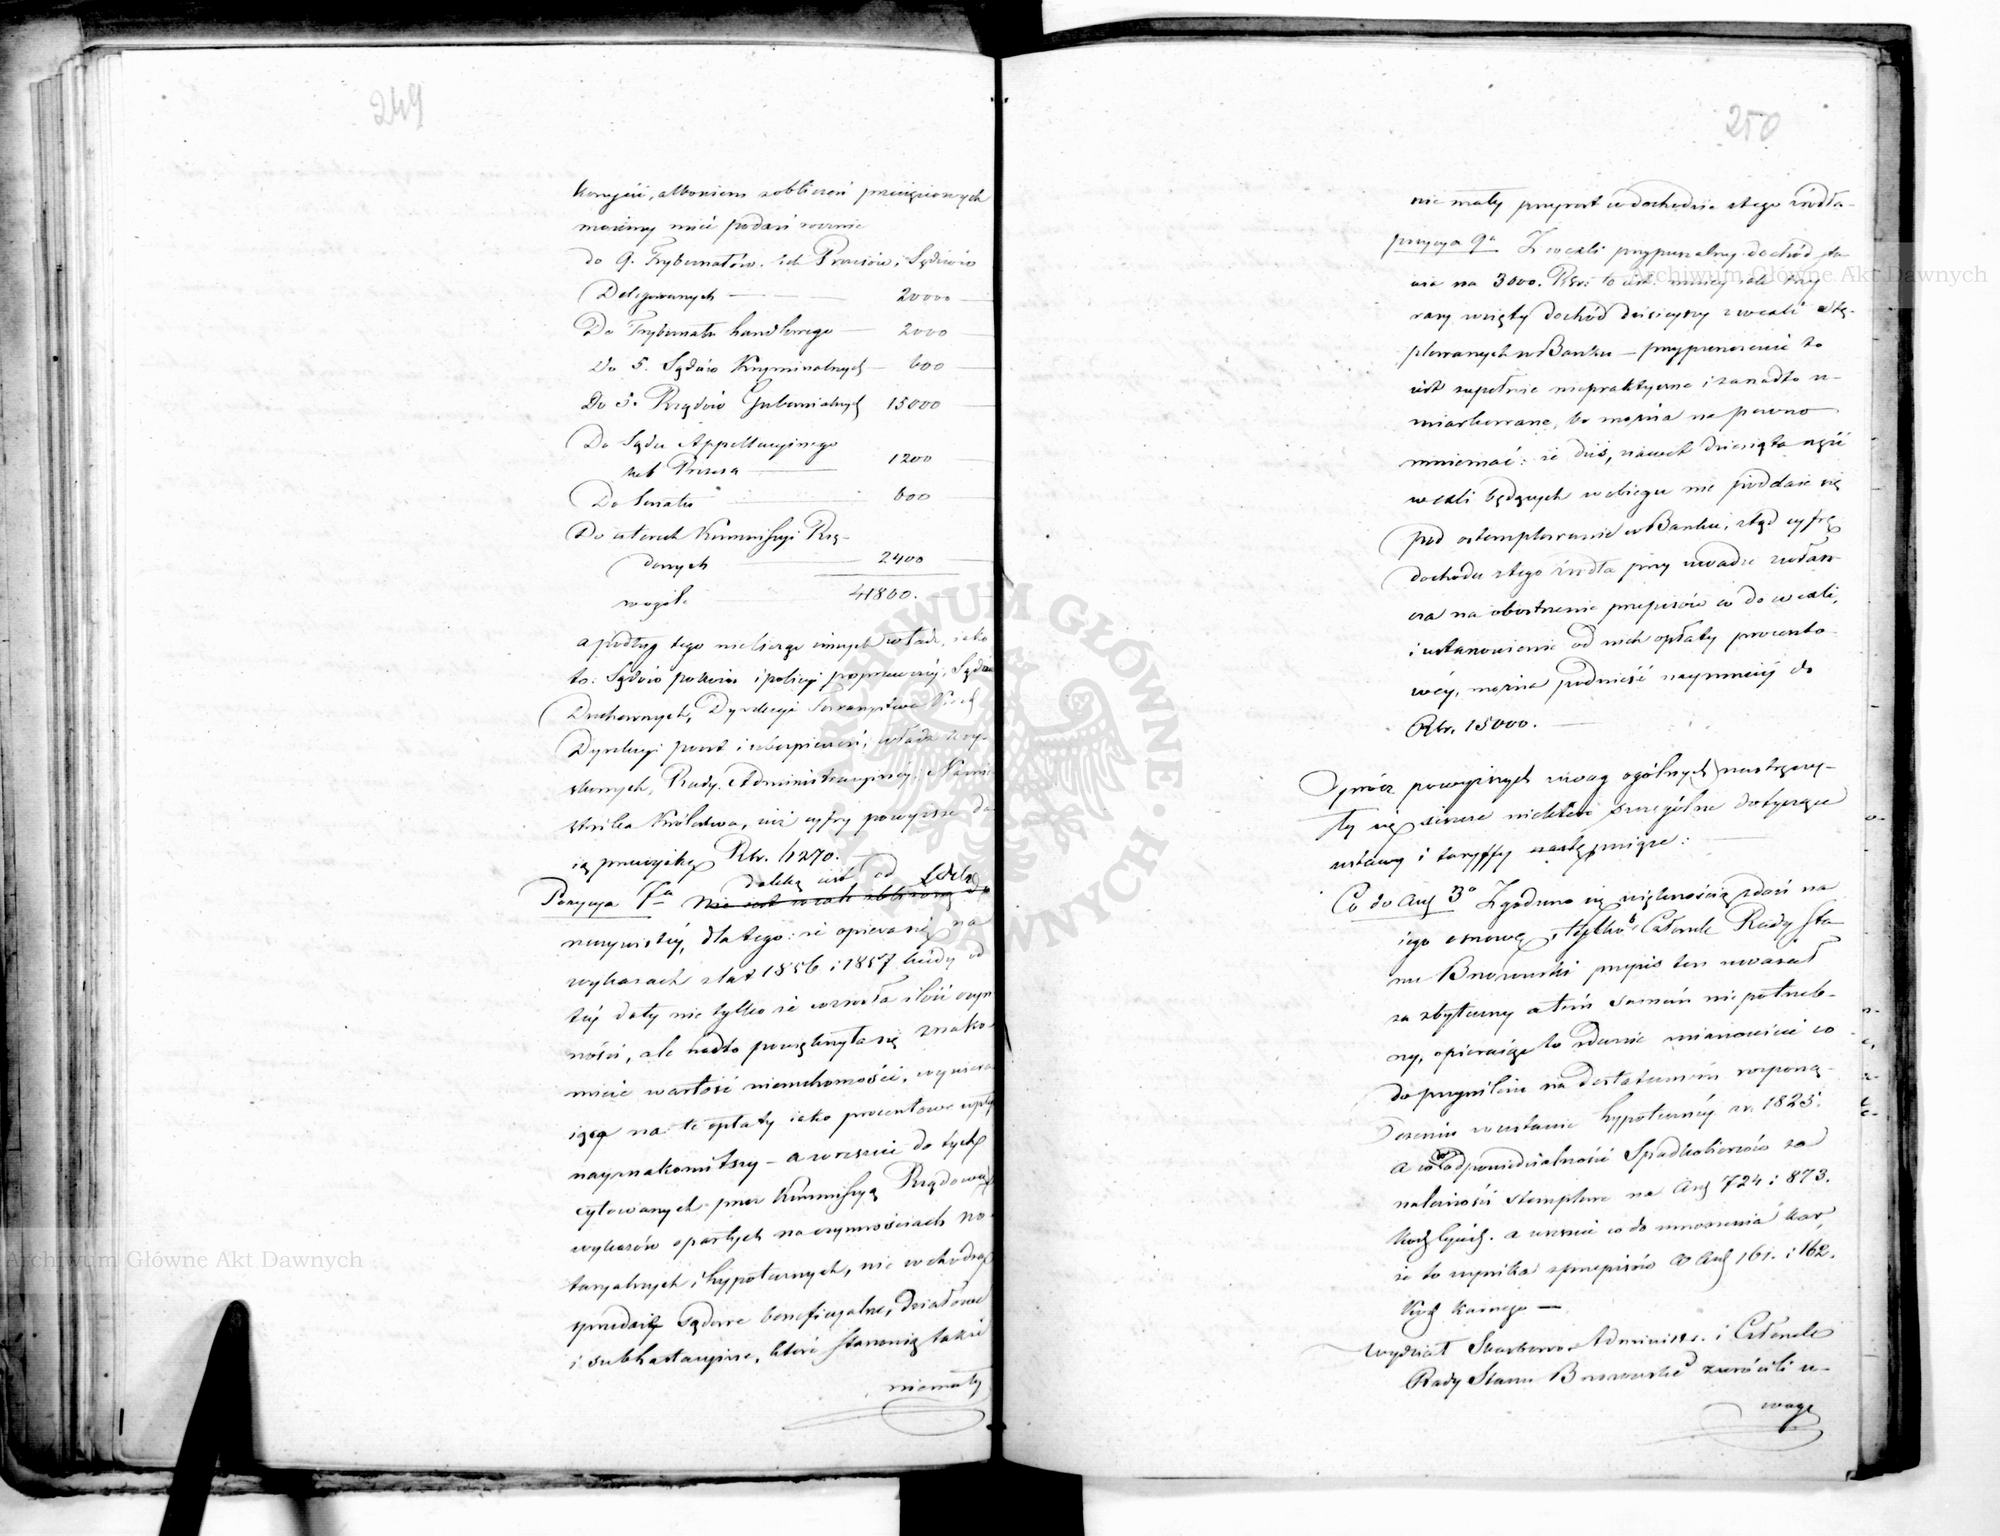 249
korzyści, albowiem z obliczeń przecięciowych
możemy mieć podań rocznie
do 9. Trybunałów, ich Prezesów, Sędziów
Delegowanych — 20000 —
Do Trybunału handlowego — 2000
Do 5. Sądów Kryminalnych — 600
Do 5. Rządów Gubernialnych 15000
Do Sądu Appellacyjnego
lub Prezesa — 1200
Do Senatu 600
Do czterech Kommissyi Rzą-
dowych 2400
wogóle 41800.
a podług tego nie licząc innych władz, jako
to: Sądów pokoju i policyi poprawczej, Sądów
Duchownych, Dyrekcyi Towarzystwa
Dyrekcyi poczt i ubezpieczeń, władz woy-
skowych, Rady Administracyjnej, Namie-
stnika Królestwa, już cyfry powyższe da-
ją przewyżkę Rbr. 1270.
daleką jest od
Pozycya 7a Nie jest wcale zbliżoną do
rzeczywistej, dlatego: że opiera się na
wykazach z lat 1856 i 1857 kiedy od
tej daty nie tylko że wzrosła ilość czyn-
ności, ale nadto powiększyła się znako-
micie wartość nieruchomości, wywiera-
jąca na te opłaty jako procentowe wpływ
najznakomitszy – a wreszcie do tych
cytowanych przez Kommissyą Rządową
wykazów opartych na czynnościach no-
taryalnych i hypotecznych, nie wchodzą
sprzedaży sądowe beneficyalne, działowe
i subhastacyjne, które stanowią także
niemały
250
nie mały przyrost w dochodzie z tego źródła.
pozycya 9a Z wexli przypuszczalny dochód poda-
na 3000. Rbr: to jest mniej jak trzy
razy wzięty dochód dzisiejszy z wexli stę-
plowanych w Banku – przypuszczenie to
jest zupełnie niepraktyczne i zanadto u-
miarkowane, bo można na pewno
mniemać: że dziś, nawet dziesiąta część
wexli będących w obiegu nie poddaje się
pod ostemplowanie w Banku, ztąd cyfrę
dochodu z tego źródła przy uwadze zwłasz-
cza na obostrzenie przepisów co do wexli,
i ustanowienie od nich opłaty procento-
wej, można podnieść najmniej do
Rbr. 15000. —
Oprócz powyższych uwag ogólnych nastręczy-
ły się jeszcze niektóre szczególne dotyczące
ustawy i taryffy a następujące: —
Co do Art 3o Zgodzono się większością zdań na
jego osnowę, tylko Członek Rady Sta-
nu Brzozowski przepis ten uważał
za zbyteczny a tem samem niepotrzeb-
ny, opierając to zdanie mianowicie co
do przymileju na dostatecznem rozporzą-
dzeniu w ustawie hypotecznej z r. 1825.
a co do odpowiedzialności Spadkobierców za
należności stemplowe na Art 724 i 873.
Kod. Cyw. a wreszcie co do umorzenia kar,
że to wynika z przepisów Art 161. i 162.
Kod. Karnego —
Wydział Skarbowo Administr. i Członek
Rady Stanu Brzozowski zwrócili u-
wagę